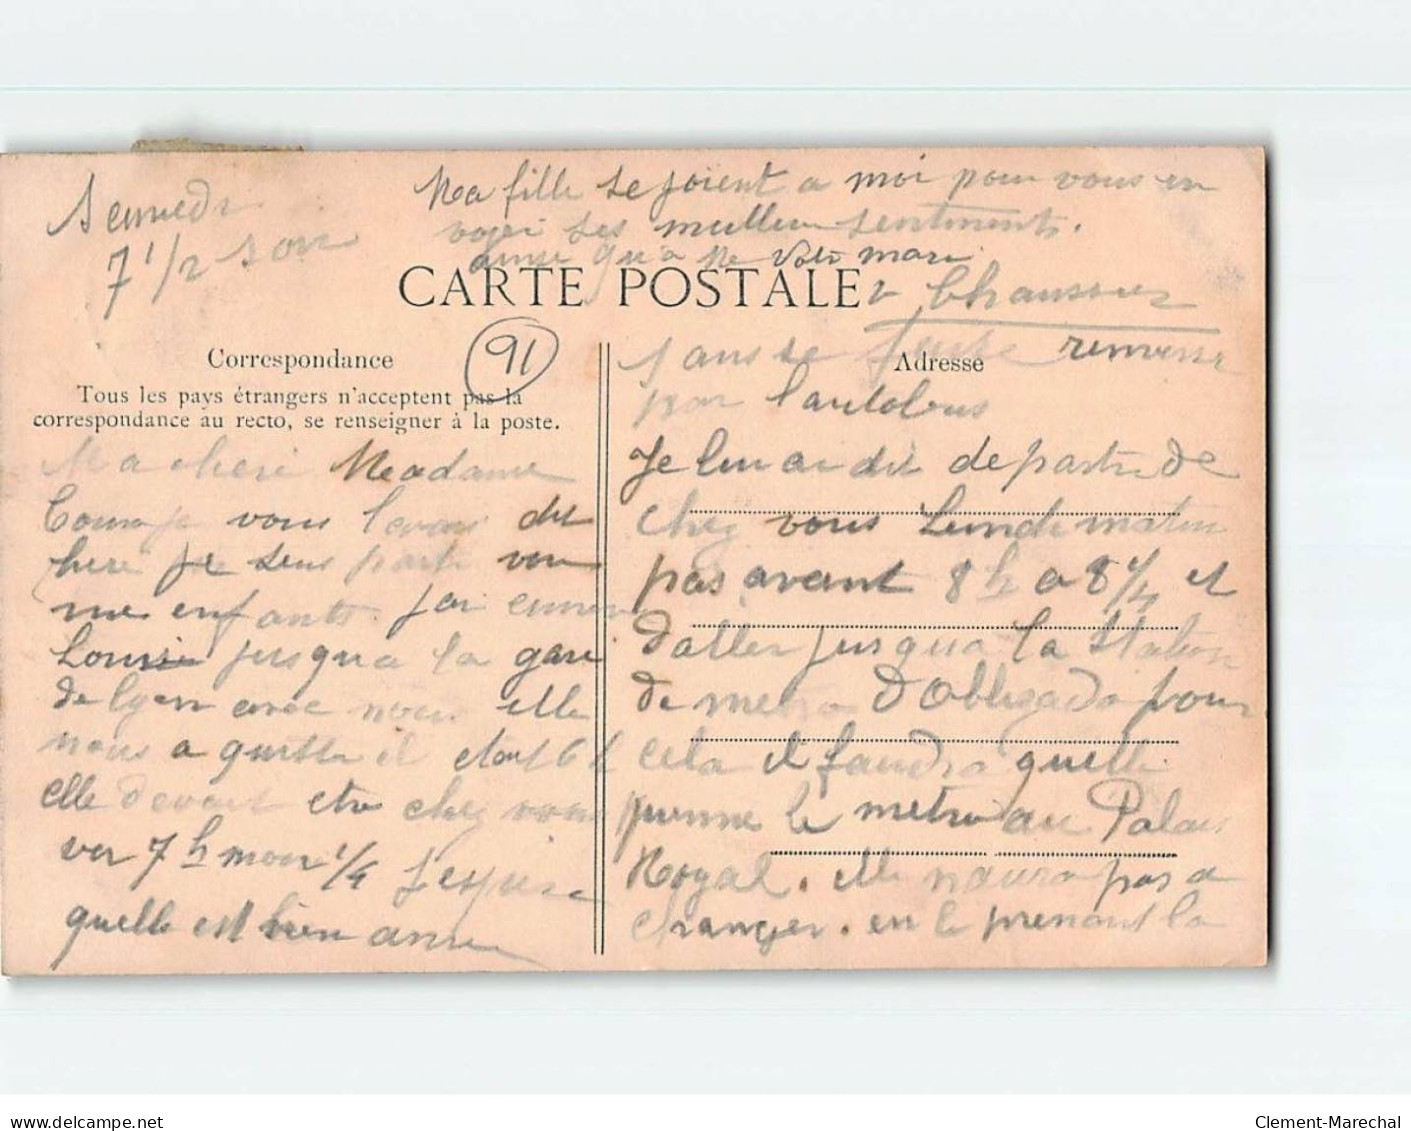 Samedi
7 1/2 soir
Ma fille se joient a moi pour vous en
voyer ses meilleur sentiments.
ainsi qu'a Me votre mari
Chaussier
CARTE POSTALE
91
Correspondance
Tous les pays étrangers n'acceptent pas la
correspondance au recto, se renseigner à la poste.
Ma cheri Madame
Comme je vous l'avais dit
hier je suis parti
mes enfants. j'ai emmené
Louise jusqu'a la gare
de lyon avec nous elle
nous a quitter il etait 6 h
elle devait etre chez vous
ver 7 h moin 1/4 J'espere
quelle est bien arrivé
sans se faire renverser
par l'autobus
Adresse
Je lui ai dit de partir de
chez vous Lundi matin
pas avant 8 h a 8 1/4 et
d'aller jusqua la Station
de metro d'Obligado pour
cela il faudra quelle
prenne le metro au Palais
Royal. elle naura pas a
changer. en le prenant la
Clement-Marechal